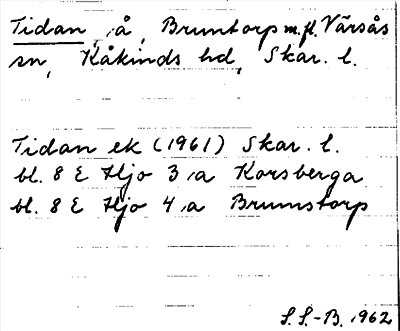 Tidan, å, Brumtorp m.fl. Värsås
sn, Kåkinds hd, Skar. l.
Tidan ek (1961) Skar. l.
bl. 8 E Hjo 3 a Korsberga
bl. 8 E Hjo 4 a Brumstorp
S.S.-B. 1962